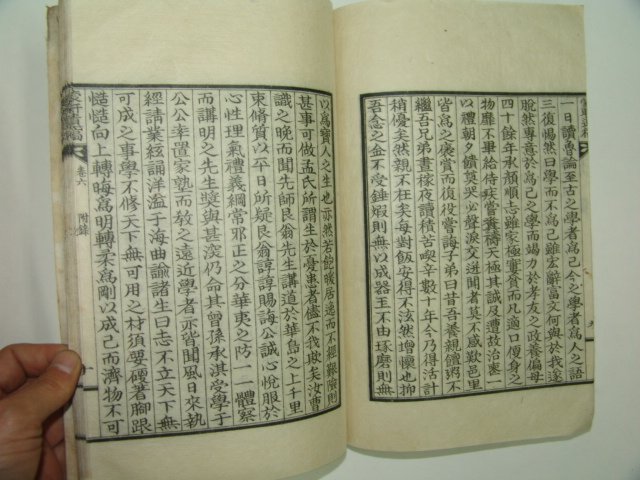 一日讀魯論至古之學者爲己今之學者爲人之語
脫然專意於爲己之學而竭力於孝友之政養偏母
三復惕然曰學而不爲己雖宏辭富文何與於我遂
四十餘年承顏順志雖家極寠貧而凡適口便身之
物靡不畢給侍疾嘗糞禱天極其誠及遭故治密一
以禮朝夕饋奠哭必聲淚交迸聞者莫不感歎邑里
皆爲之褒賞而復役嘗誨子弟曰昔吾養親饘粥不
繼吾兄弟晝樵夜讀積苦喫辛數十年今乃得活計
稍優矣然親不在矣每對飯安得不泫然增懷也抑
吾念之金不受錘煅則無以成器玉不由琢磨則無
以爲寶人之生也亦然若飽暖居逸而不經艱險則
甚事可做孟氏所謂生於憂患者儘不我欺矣汝曹
識之晚而聞先師艮翁先生講道於華島之上千里
束脩質以平日所疑艮翁諄諄賜誨公誠心悅服於
心性理氣禮義綱常邪正之分華夷之防一一體察
而講明之先生奬與甚深仍命其曾孫承淇受學于
公公牽置家塾而敎之遠近學者亦皆聞風日來執
經請業絃誦洋溢于海曲諭諸生曰志不立天下無
可成之事學不修天下無可用之材須要硬著腳跟
慥慥向上轉晦爲明轉柔爲剛以成己而濟物不可
軒遺稿
卷六
附錄
十